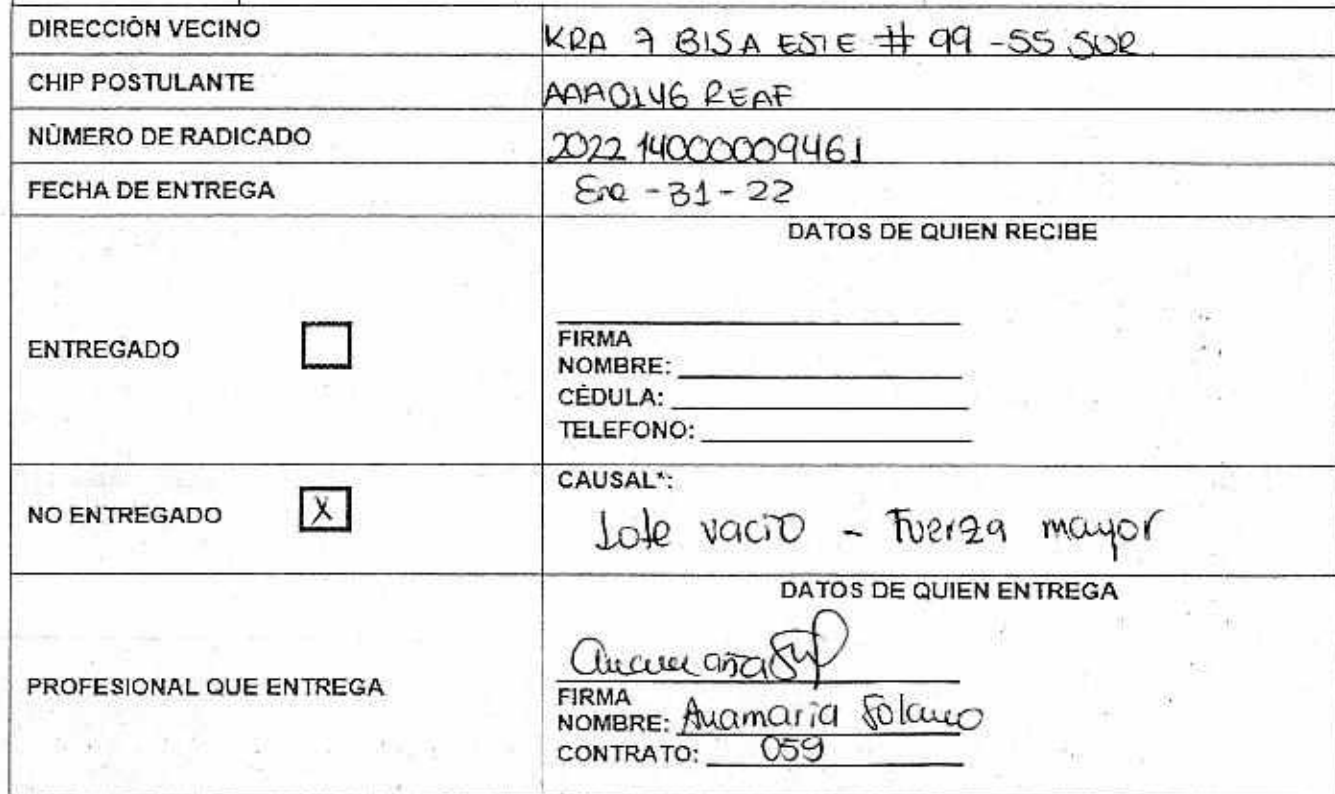 DIRECCIÓN VECINO KRA 7 BISA ESTE # 99 -55 SUR
CHIP POSTULANTE AAA0146 REAF
NÚMERO DE RADICADO 2022 14000009461
FECHA DE ENTREGA Ene - 31 - 22
DATOS DE QUIEN RECIBE
ENTREGADO
FIRMA
NOMBRE:
CÉDULA:
TELEFONO:
NO ENTREGADO X
CAUSAL*:
Lote vacio - Fuerza mayor
DATOS DE QUIEN ENTREGA
PROFESIONAL QUE ENTREGA
FIRMA
NOMBRE: Anamaria Solano
CONTRATO: 059